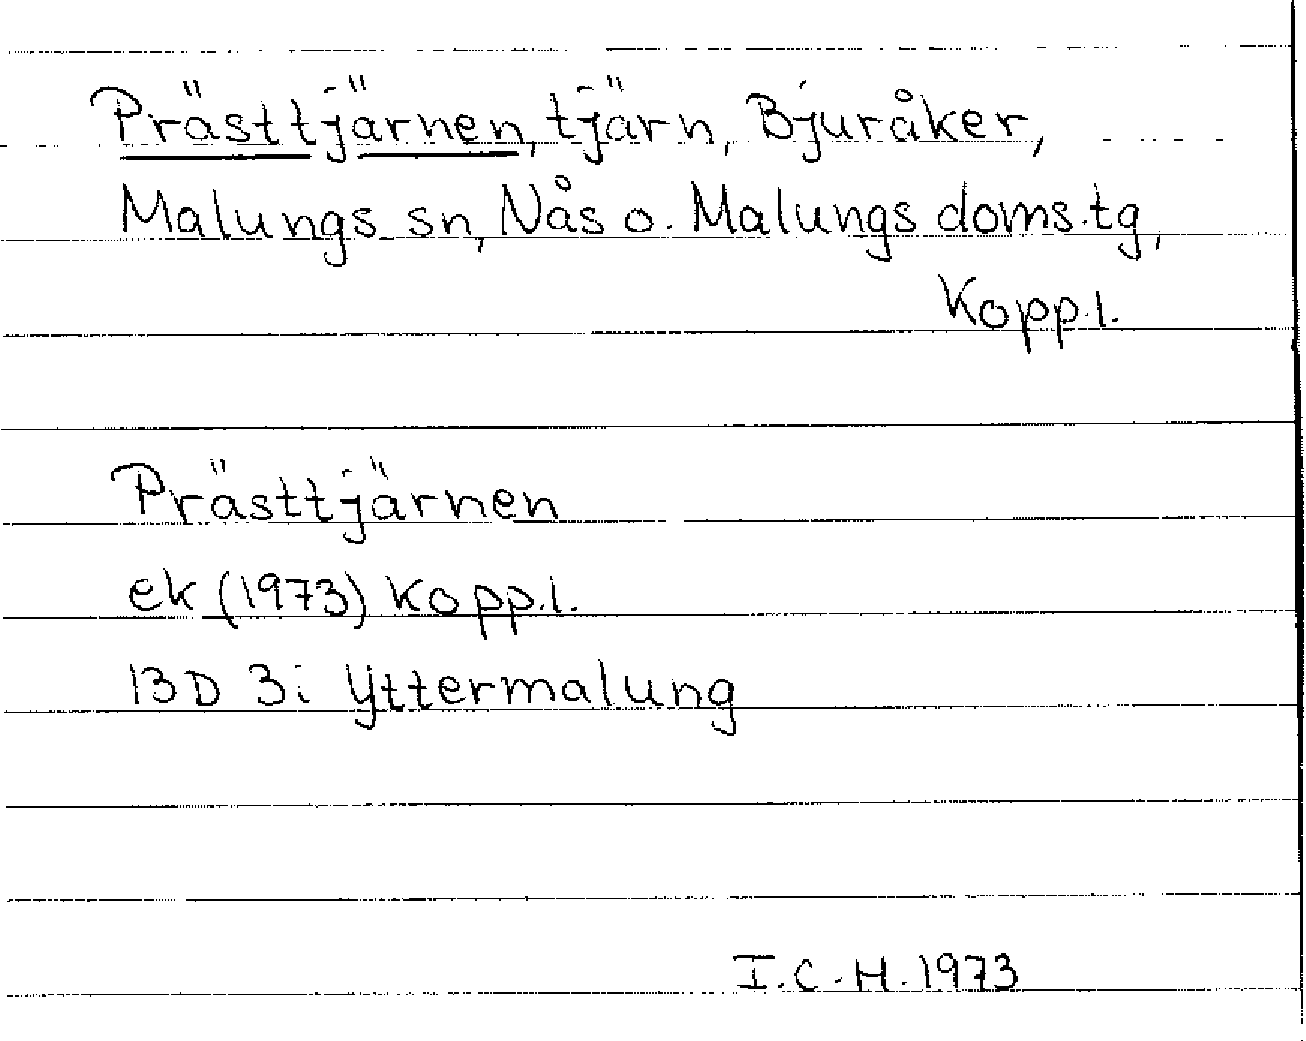 Prästtjärnen, tjärn, Bjuråker,
Malungs sn, Nås o. Malungs doms.tg,
Kopp.l.
Prästtjärnen
ek (1973) Kopp.l.
13D 3i Yttermalung
I.C.H. 1973